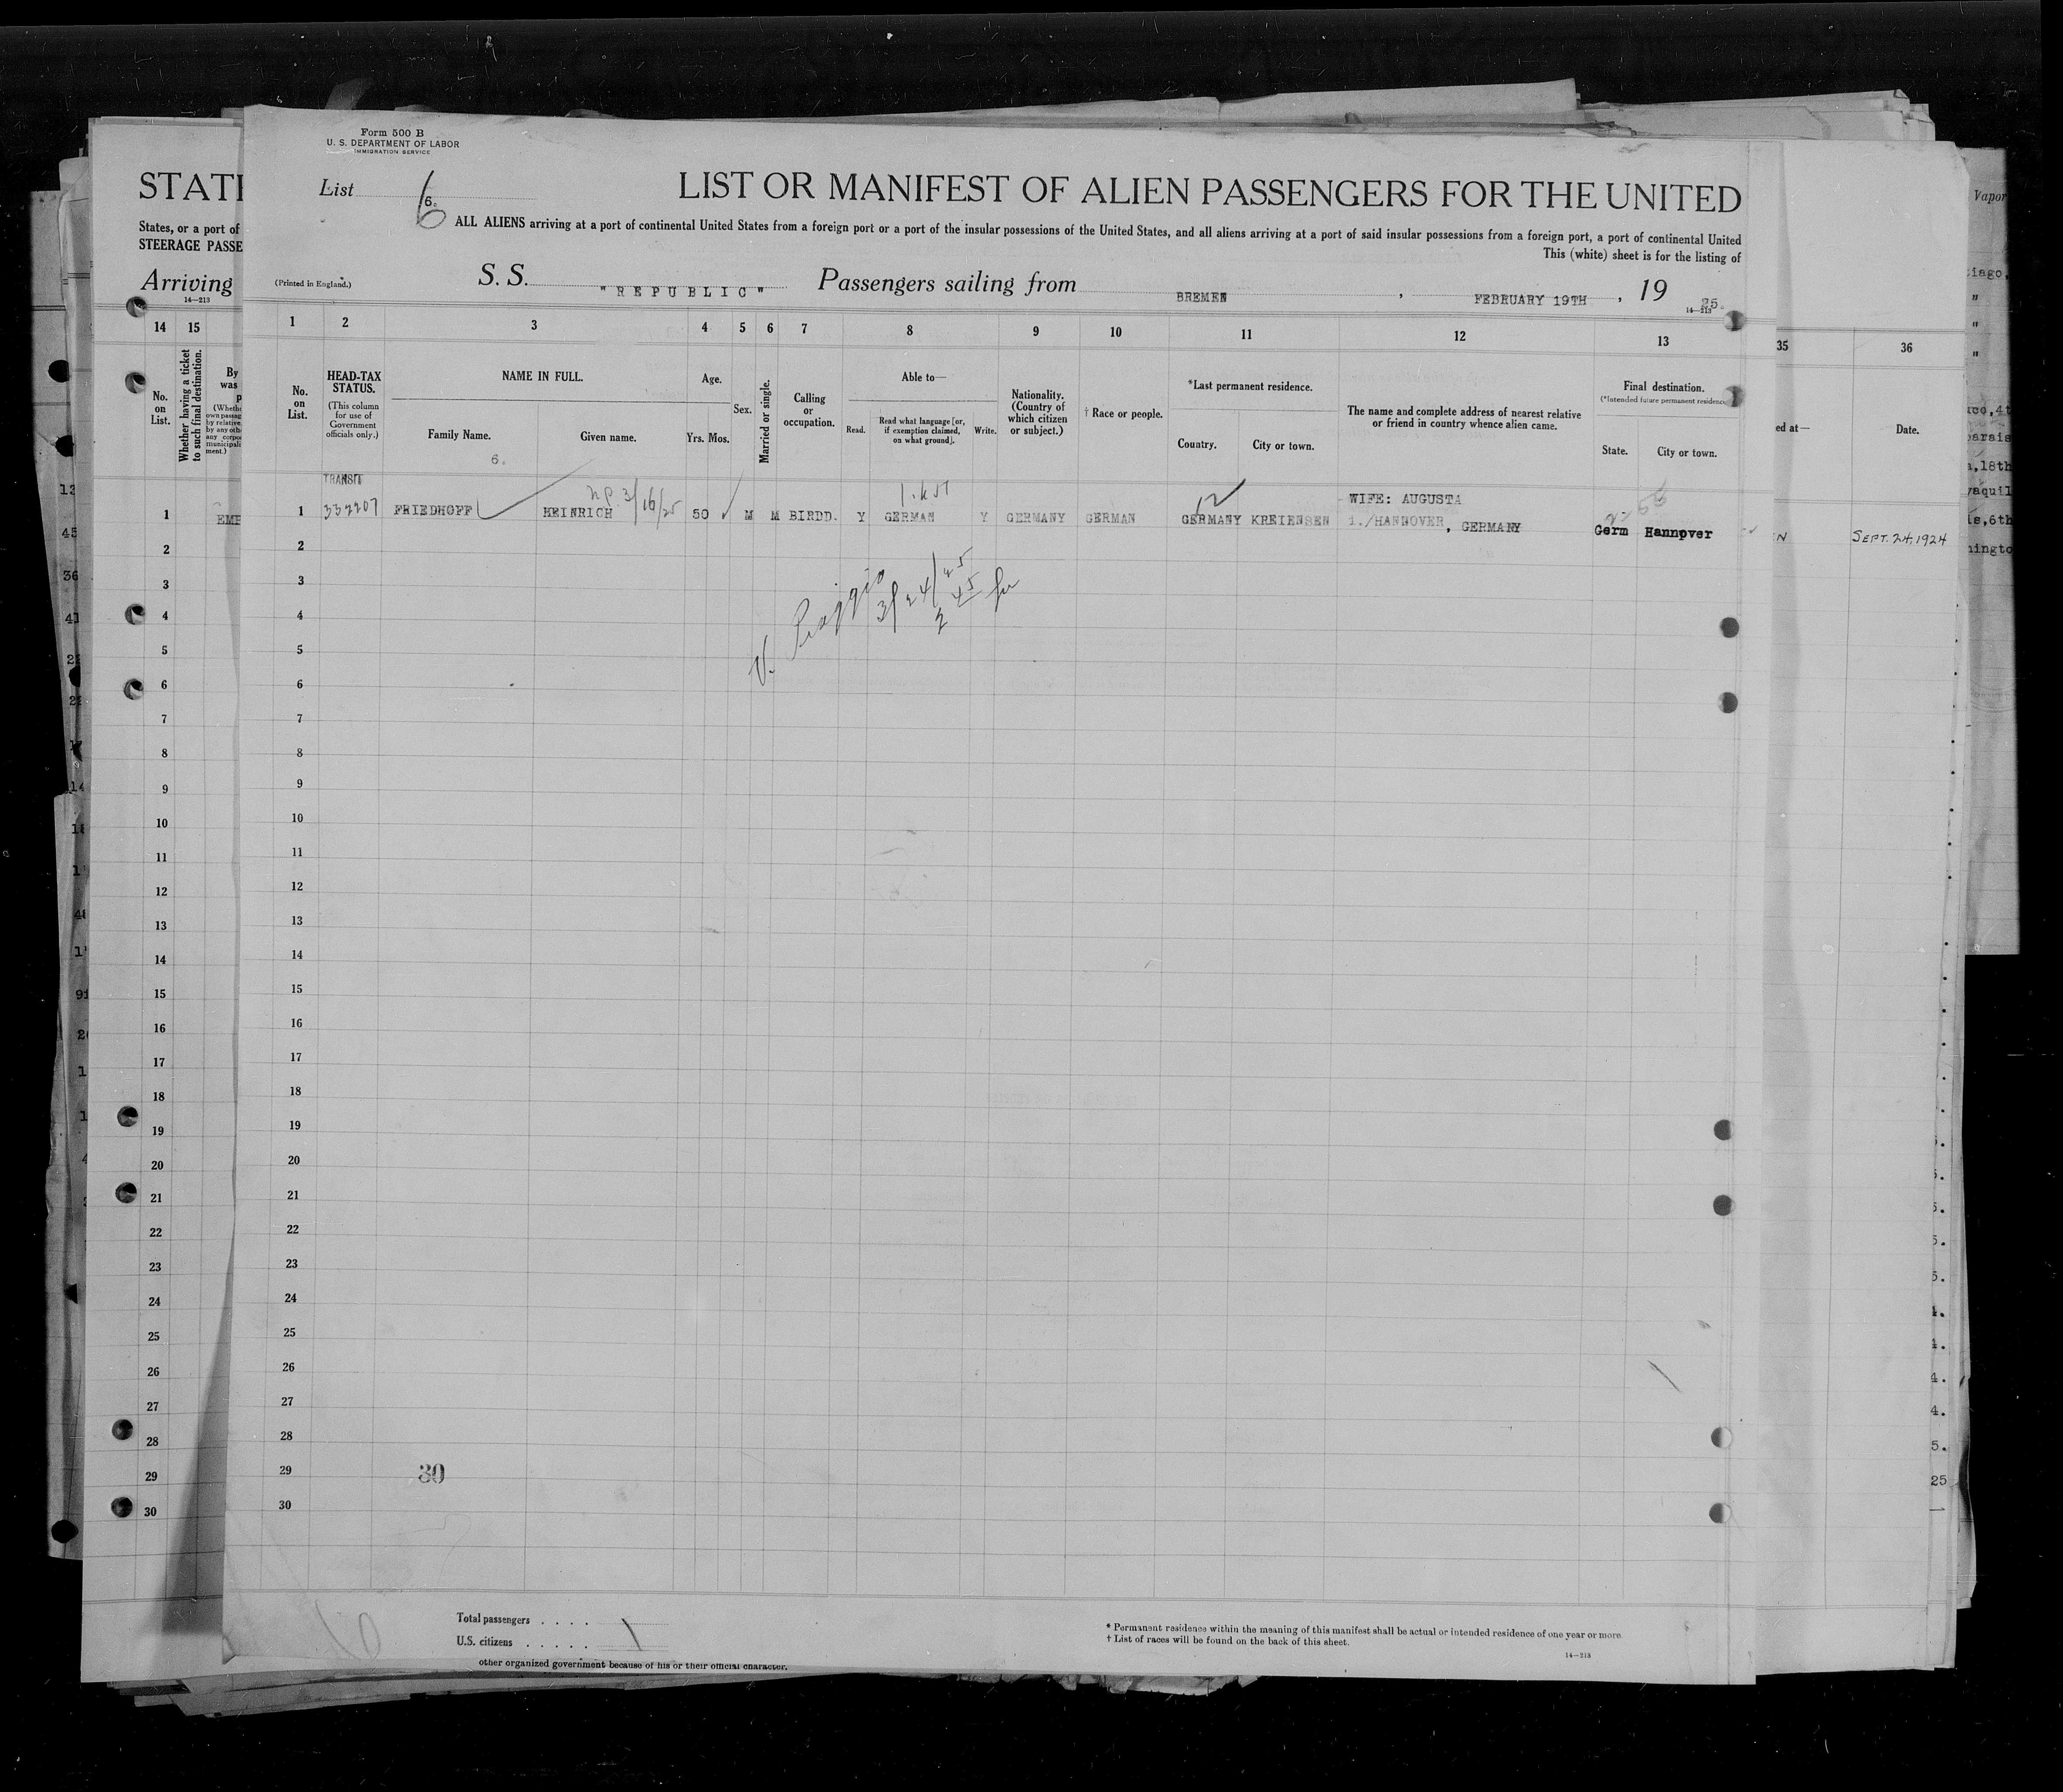 Form 500 B
U. S. DEPARTMENT OF LABOR
IMMIGRATION SERVICE
List 6.
6
LIST OR MANIFEST OF ALIEN PASSENGERS FOR THE UNITED
ALL ALIENS arriving at a port of continental United States from a foreign port or a port of the insular possessions of the United States, and all aliens arriving at a port of said insular possessions from a foreign port, a port of continental United
This (white) sheet is for the listing of
(Printed in England.)
S. S. "REPUBLIC" Passengers sailing from BREMEN, FEBRUARY 19TH, 1925.
14—213
STATE
States, or a port of
STEERAGE PASSE
Arriving
14—213
14 15
No. on List.
Whether having a ticket to such final destination.
By
was
p
(Wheth
own passag
by relative,
by any oth
any corpo
municipali
ment.)
1 2 3 4 5 6 7 8 9 10 11 12 13
35 36
No. on List.
HEAD-TAX STATUS.
(This column for use of Government officials only.)
NAME IN FULL.
Family Name.
Given name.
6.
Age.
Yrs. Mos.
Sex.
Married or single.
Calling or occupation.
Able to—
Read.
Read what language [or, if exemption claimed, on what ground].
Write.
Nationality. (Country of which citizen or subject.)
† Race or people.
*Last permanent residence.
Country.
City or town.
The name and complete address of nearest relative or friend in country whence alien came.
Final destination.
(*Intended future permanent residence
State.
City or town.
ed at—
Date.
TRANSIT
1 332207 FRIEDHOFF HEINRICH 3/16/25 50 M M BIRDD. Y GERMAN Y GERMANY GERMAN GERMANY KREIENSEN WIFE: AUGUSTA
i./HANNOVER, GERMANY Germ Hannover
12
EMP
N SEPT. 24, 1924
3/24/25
2
3
4
5
6
7
8
9
10
11
12
13
14
15
16
17
18
19
20
21
22
23
24
25
26
27
28
29
30
30
1
2
3
4
5
6
7
8
9
10
11
12
13
14
15
16
17
18
19
20
21
22
23
24
25
26
27
28
29
30
Total passengers . . . .
U.S. citizens . . . . .
other organized government because of his or their official character.
* Permanent residence within the meaning of this manifest shall be actual or intended residence of one year or more
† List of races will be found on the back of this sheet.
14—213
Vapor
iago,
co,4t
arais
,18th
yaquil
s,6th
ingto
25